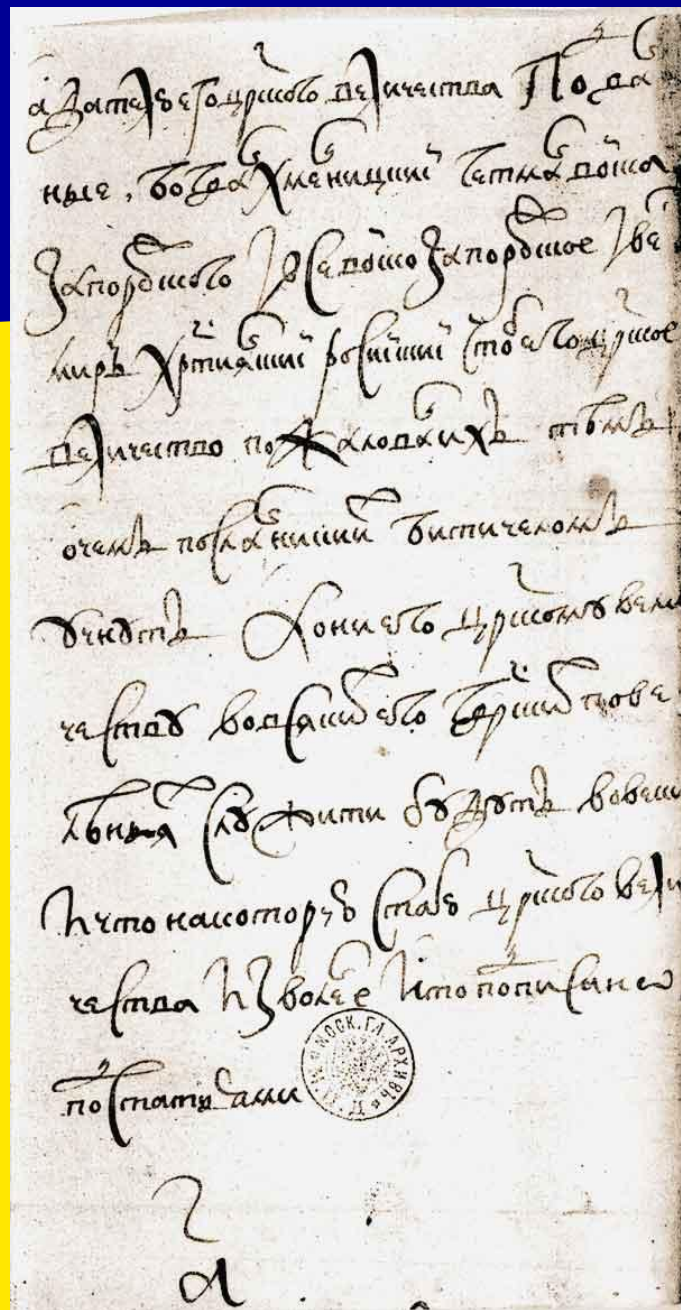 его црского величества Пода
ные, Богдан Хмелницкий гетман войска
Запорозского И все войско Запорозское И вес
миръ Хрстиянский росийский чтоб его црское
величество пожаловал ихъ тѣмъ
о чемъ посланники ихъ бити челомъ
учнутъ А они его црскому вели
честву во всяких его гдрских пове
лѣньях служити будутъ вовеки
И что на которую статю црского вели
чества Изволене И то подписано
под статьями
МОСК. ГЛ. АРХИВЪ
а